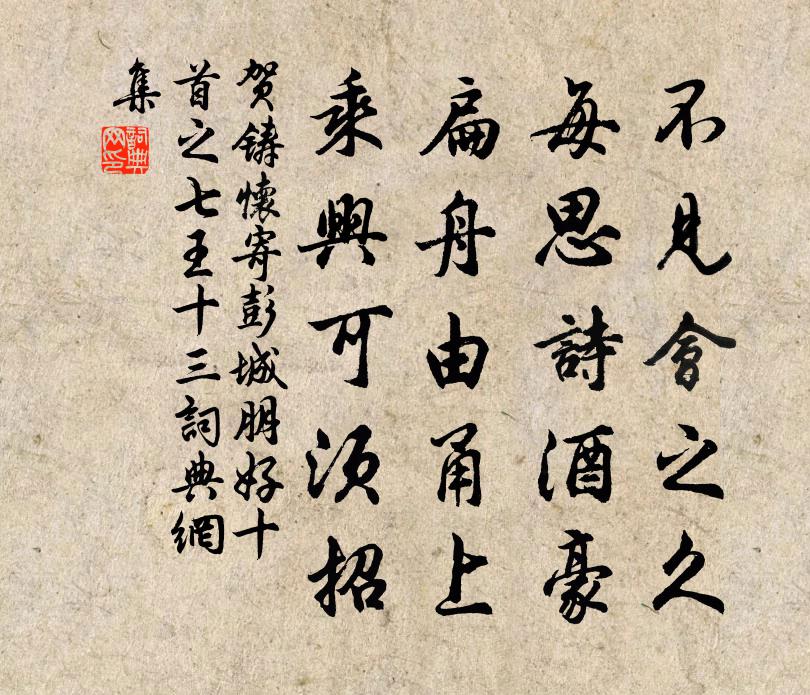 不見會之久
每思詩酒豪
扁舟由甬上
乘興可須招
賀鑄懷寄彭城朋好十
首之七王十三詞典網
集
詞典
網印